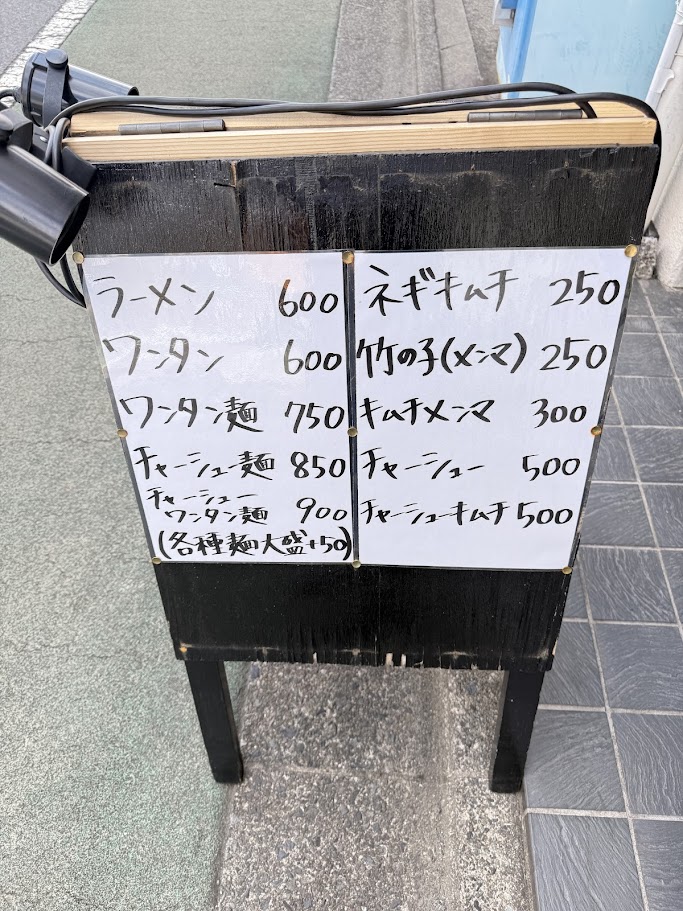 ラーメン 600
ワンタン 600
ワンタン麺 750
チャーシュー麺 850
チャーシュー
ワンタン麺 900
(各種麺大盛+50)
ネギキムチ 250
竹の子(メンマ) 250
キムチメンマ 300
チャーシュー 500
チャーシューキムチ 500